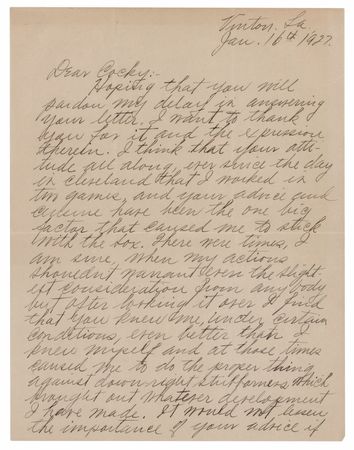 Vinton, La.
Jan. 16th 1927.
Dear Cocky:-
Hoping that you will
pardon my delay in answering
your letter. I want to thank
you for it and the expression
therein. I think that your atti-
tude all along, ever since the day
in cleveland that I worked in
two games, and your advice and
have been the one big
factor that caused me to stick
with the sox. There were times, I
am sure, when my actions
shouldn't warrant even the slight-
est consideration from any body
but after looking it over I find
that you knew me, under certain
conditions, even better than I
knew myself and at those times
caused me to do the proper thing
against down right stubborness which
brought out whatever development
I have made. It would not lessen
the importance of your advice if